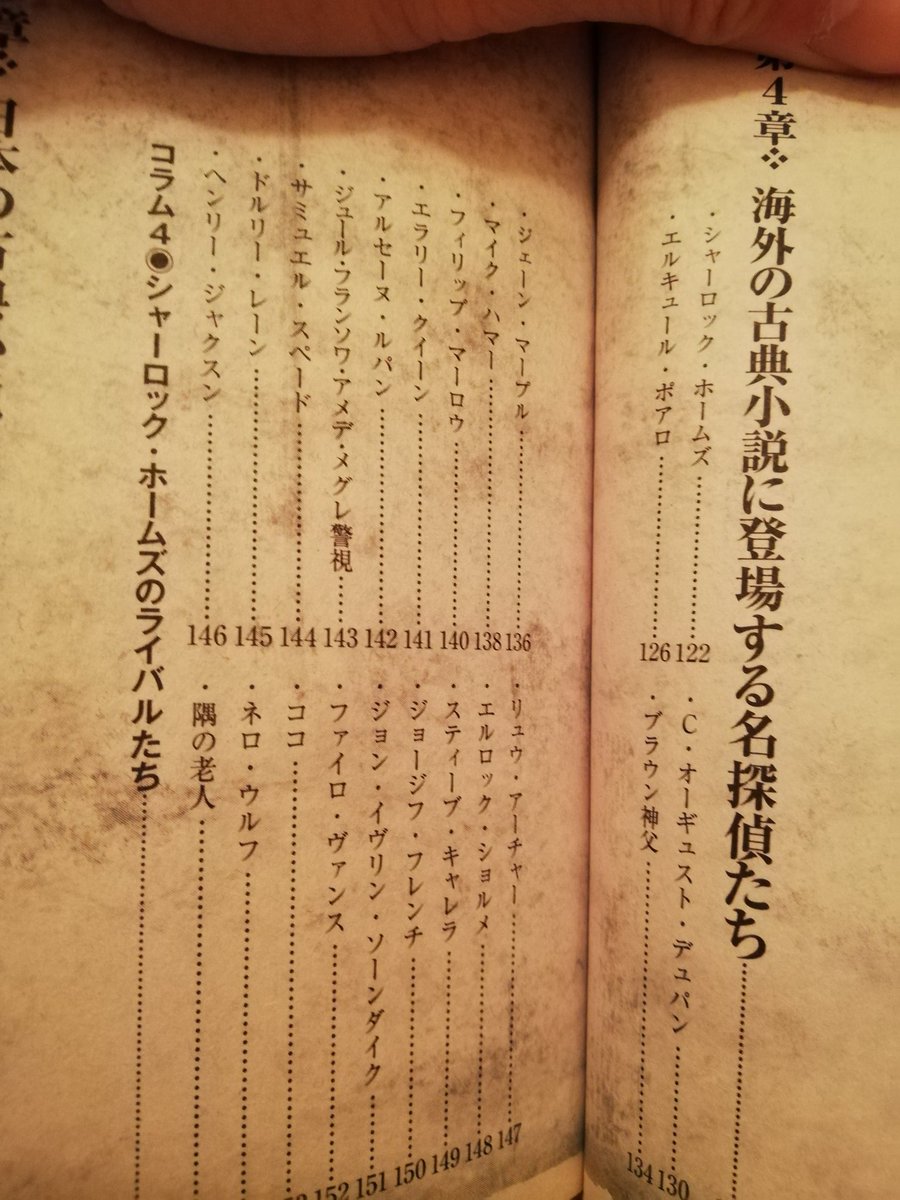 第4章❖ 海外の古典小説に登場する名探偵たち
・シャーロック・ホームズ……122
・C・オーギュスト・デュパン……130
・エルキュール・ポアロ……126
・ブラウン神父……134
・ジェーン・マープル……136
・リュウ・アーチャー……147
・マイク・ハマー……138
・エルロック・ショルメ……148
・フィリップ・マーロウ……140
・スティーブ・キャレラ……149
・エラリー・クイーン……141
・ジョージフ・フレンチ……150
・アルセーヌ・ルパン……142
・ジョン・イヴリン・ソーンダイク……151
・ジュール・フランソワ・アメデ・メグレ警視……143
・ファイロ・ヴァンス……152
・サミュエル・スペード……144
・ココ……
・ドルリー・レーン……145
・ネロ・ウルフ……
・ヘンリー・ジャクスン……146
・隅の老人……
コラム4◉シャーロック・ホームズのライバルたち……
章❖ 日本の古